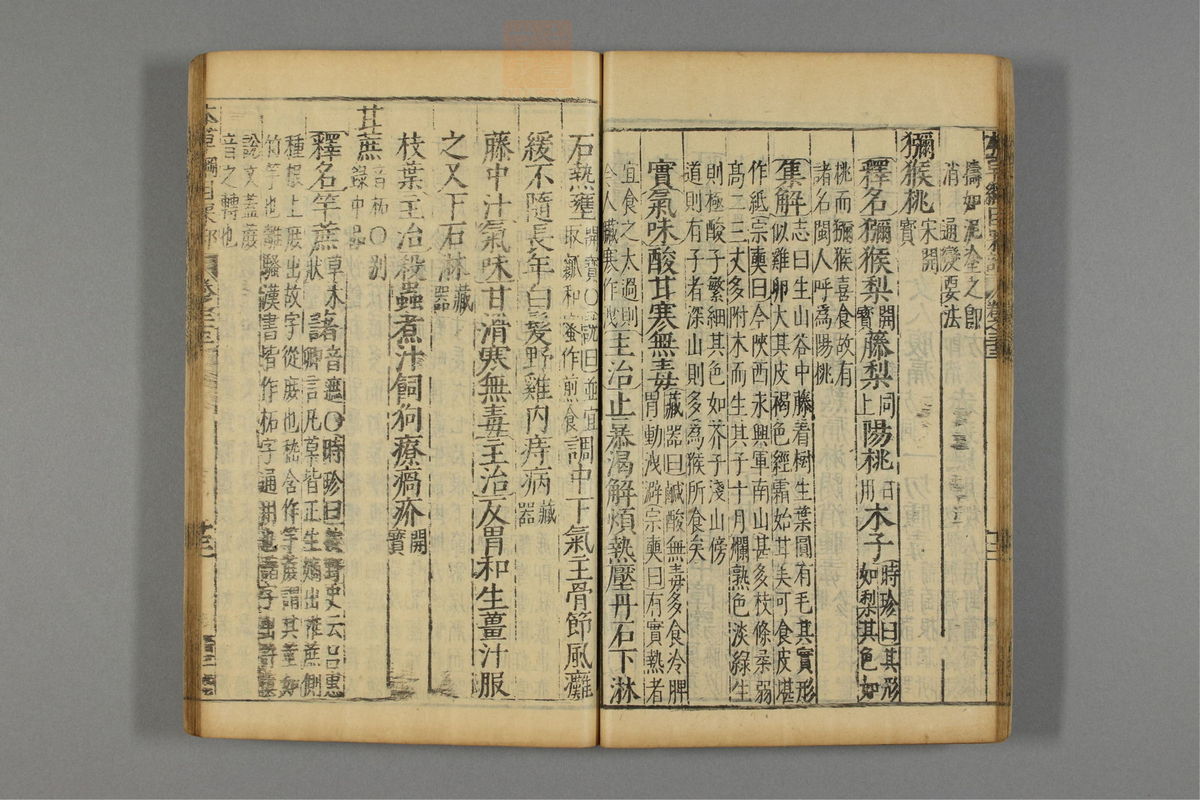 擣如泥塗之即
消 通變要法
獼猴桃宋開
寶
釋名獼猴梨開
寶藤梨同
上陽桃日
用木子時珍曰其形
如梨其色如
桃而獼猴喜食故有
諸名閩人呼為陽桃
集解志曰生山谷中藤着樹生葉圓有毛其實形
似雞卵大其皮褐色經霜始甘美可食皮堪
作紙宗奭曰今陝西永興軍南山甚多枝條柔弱
高二三丈多附木而生其子十月爛熟色淡綠生
則極酸子繁細其色如芥子淺山傍
道則有子者深山則多為猴所食矣
實氣味酸甘寒無毒藏器曰鹹酸無毒多食冷脾
胃動洩澼宗奭曰有實熱者
宜食之太過則
令人臟寒作洩主治止暴渴解煩熱壓丹石下淋
石熱壅開寶○詵曰並宜
取瓤和蜜作煎食調中下氣主骨節風癱
緩不隨長年白髮野雞內痔病藏
器
藤中汁氣味甘滑寒無毒主治反胃和生薑汁服
之又下石淋藏
器
枝葉主治殺蟲煮汁飼狗療瘑疥開
寶
甘蔗音柘○別
錄中品
釋名竿蔗草木
狀藷音遮○時珍曰按野史云呂惠
卿言凡草皆正生嫡出惟蔗側
種根上庶出故字從庶也嵇含作竿蔗謂其莖如
竹竿也離騷漢書皆作柘字通用也藷字出許慎
說文蓋蔗
音之轉也